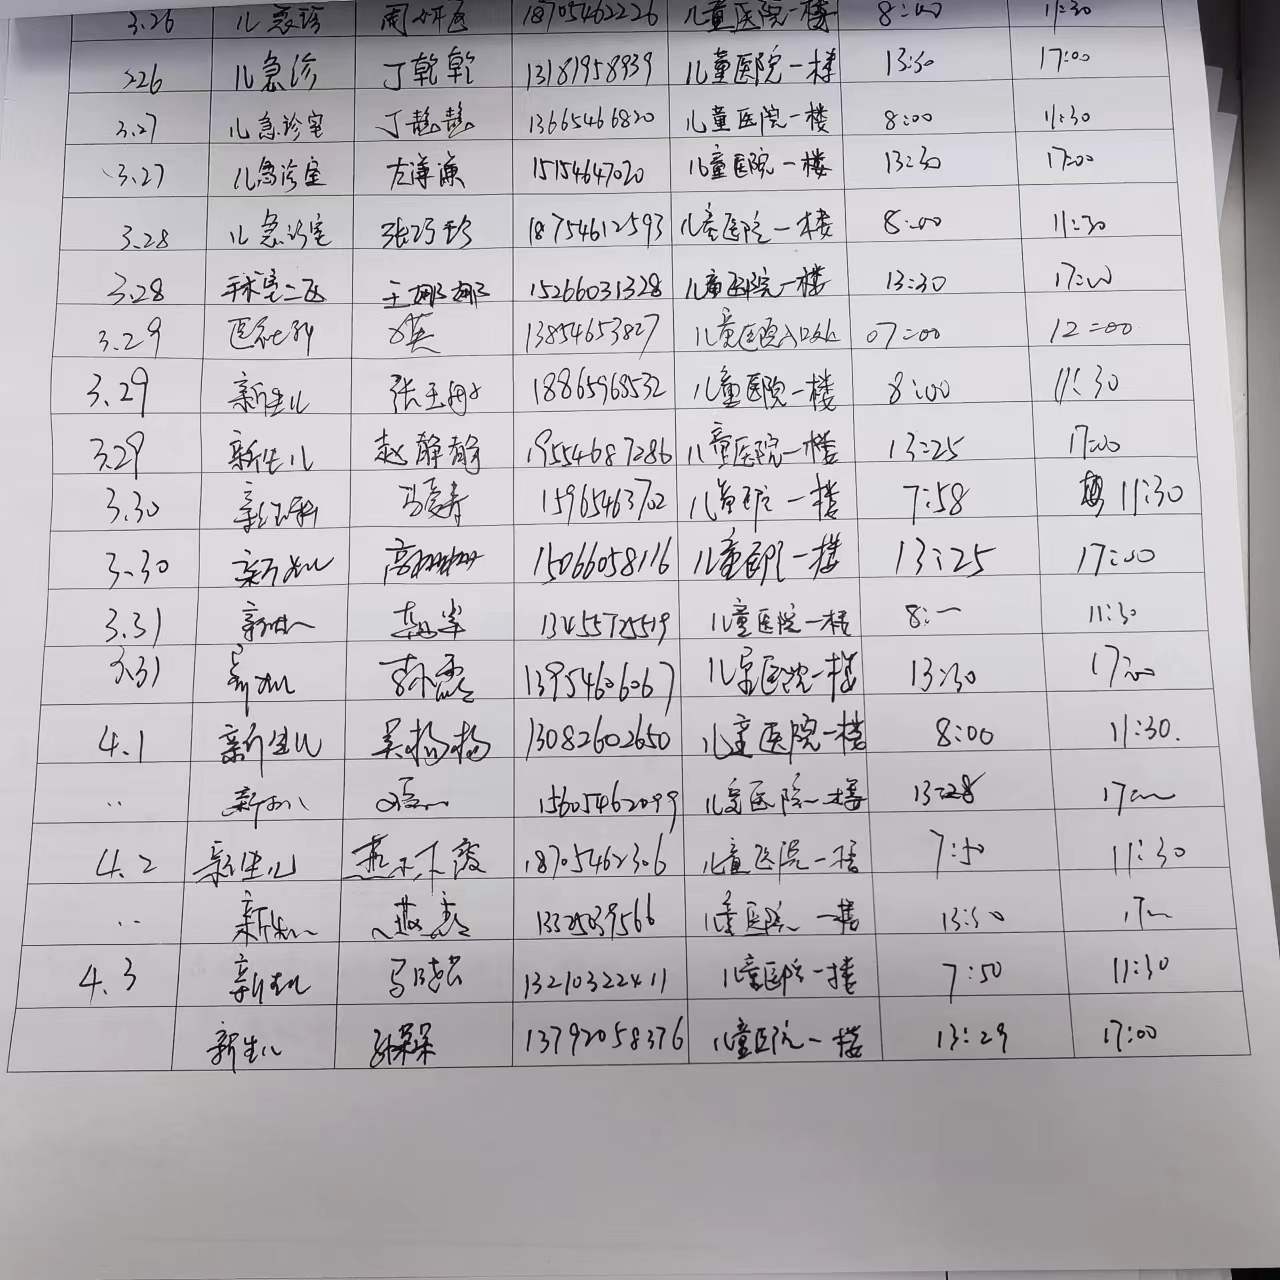 3.26 儿急诊 周 18705462226 儿童医院一楼 8:00 11:30
3.26 儿急诊 丁乾乾 13181958939 儿童医院一楼 13:30 17:00
3.27 儿急诊室 丁喆喆 13665466820 儿童医院一楼 8:00 11:30
3.27 儿急诊室 左謙謙 15154647020 儿童医院一楼 13:30 17:00
3.28 儿急诊室 张巧珍 18754612593 儿童医院一楼 8:00 11:30
3.28 手术室二区 王娜娜 15266031328 儿童医院一楼 13:30 17:00
3.29 医社科 英 13854653827 儿童医院入口处 07:00 12:00
3.29 新生儿 张玉 18865968532 儿童医院一楼 8:00 11:30
3.29 新生儿 赵静静 19554687286 儿童医院一楼 13:25 17:00
3.30 新生儿科 冯爱寿 15965463702 儿童医院一楼 7:58 11:30
3.30 新生儿 高姗姗 15066058116 儿童医院一楼 13:25 17:00
3.31 新生儿 13455725519 儿童医院一楼 8:一 11:30
3.31 新生儿 孙露 13954606067 儿童医院一楼 13:30 17:00
4.1 新生儿 吴杨杨 13082602650 儿童医院一楼 8:00 11:30.
‥ 新生儿 15605462099 儿童医院一楼 13:28 17:00
4.2 新生儿 燕霞 18705462306 儿童医院一楼 7:50 11:30
‥ 新生儿 燕 13325039566 儿童医院一楼 13:30 17:00
4.3 新生儿 马晓芸 13210322411 儿童医院一楼 7:50 11:30
新生儿 孙朵朵 13792058376 儿童医院一楼 13:29 17:00